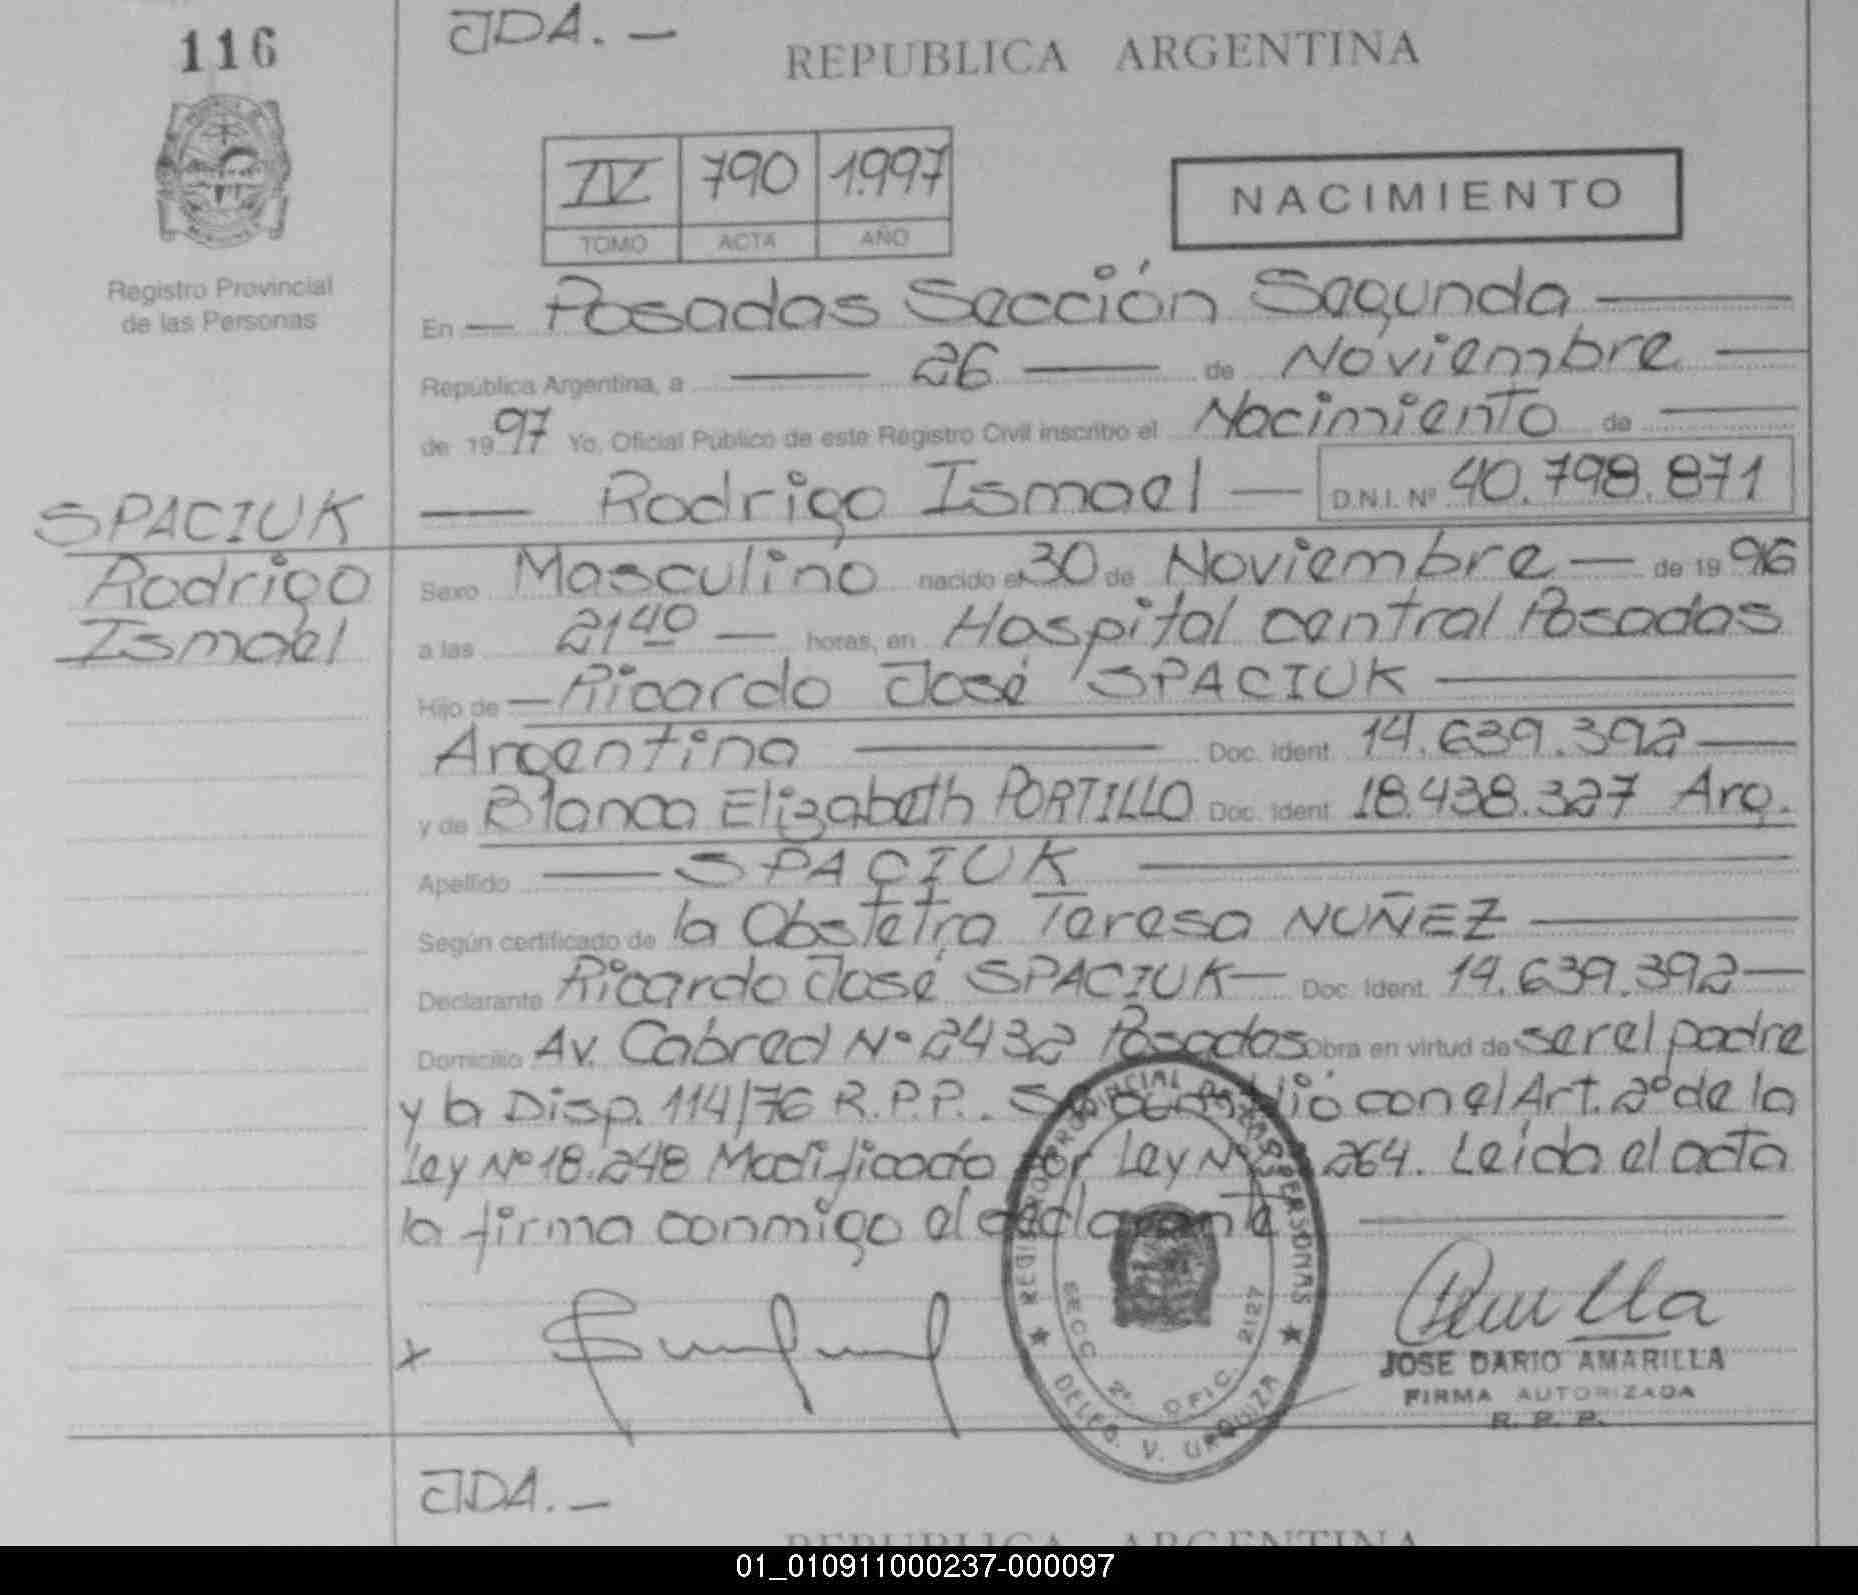 116
JDA. —
REPUBLICA ARGENTINA
IV 790 1.997
TOMO ACTA AÑO
NACIMIENTO
Registro Provincial
de las Personas
En — Posadas Sección Segunda —
República Argentina, a — 26 — de Noviembre —
de 1997 Yo, Oficial Público de este Registro Civil inscribo el Nacimiento de —
SPACIUK
Rodrigo
Ismael
— Rodrigo Ismael — D.N.I. Nº 40.798.871
Sexo Masculino nacido el 30 de Noviembre — de 1996
a las 21 40 — horas, en Hospital central Posadas
Hijo de — Ricardo José SPACIUK —
Argentina — Doc. Ident. 14.639.392 —
y de Blanca Elizabeth PORTILLO Doc. Ident. 18.438.327 Arg.
Apellido — SPACIUK —
Según certificado de la Obstetra Teresa NUÑEZ —
Declarante Ricardo José SPACIUK — Doc. Ident. 14.639.392 —
Domicilio Av. Cabred Nº 2432 Posadas Obra en virtud de ser el padre
y la Disp. 114/76 R.P.P.. Se cumplió con el Art. 2º de la
Ley Nº 18.248 Modificado por Ley Nº 264. Leída el acta
la firma conmigo el declarante —
REGISTRO PROVINCIAL DE LAS PERSONAS
SECC. 2ª OFIC. 2127
DELEG. V. URQUIZA
x
JOSE DARIO AMARILLA
FIRMA AUTORIZADA
R. P. P.
JDA. —
REPUBLICA ARGENTINA
01_010911000237-000097